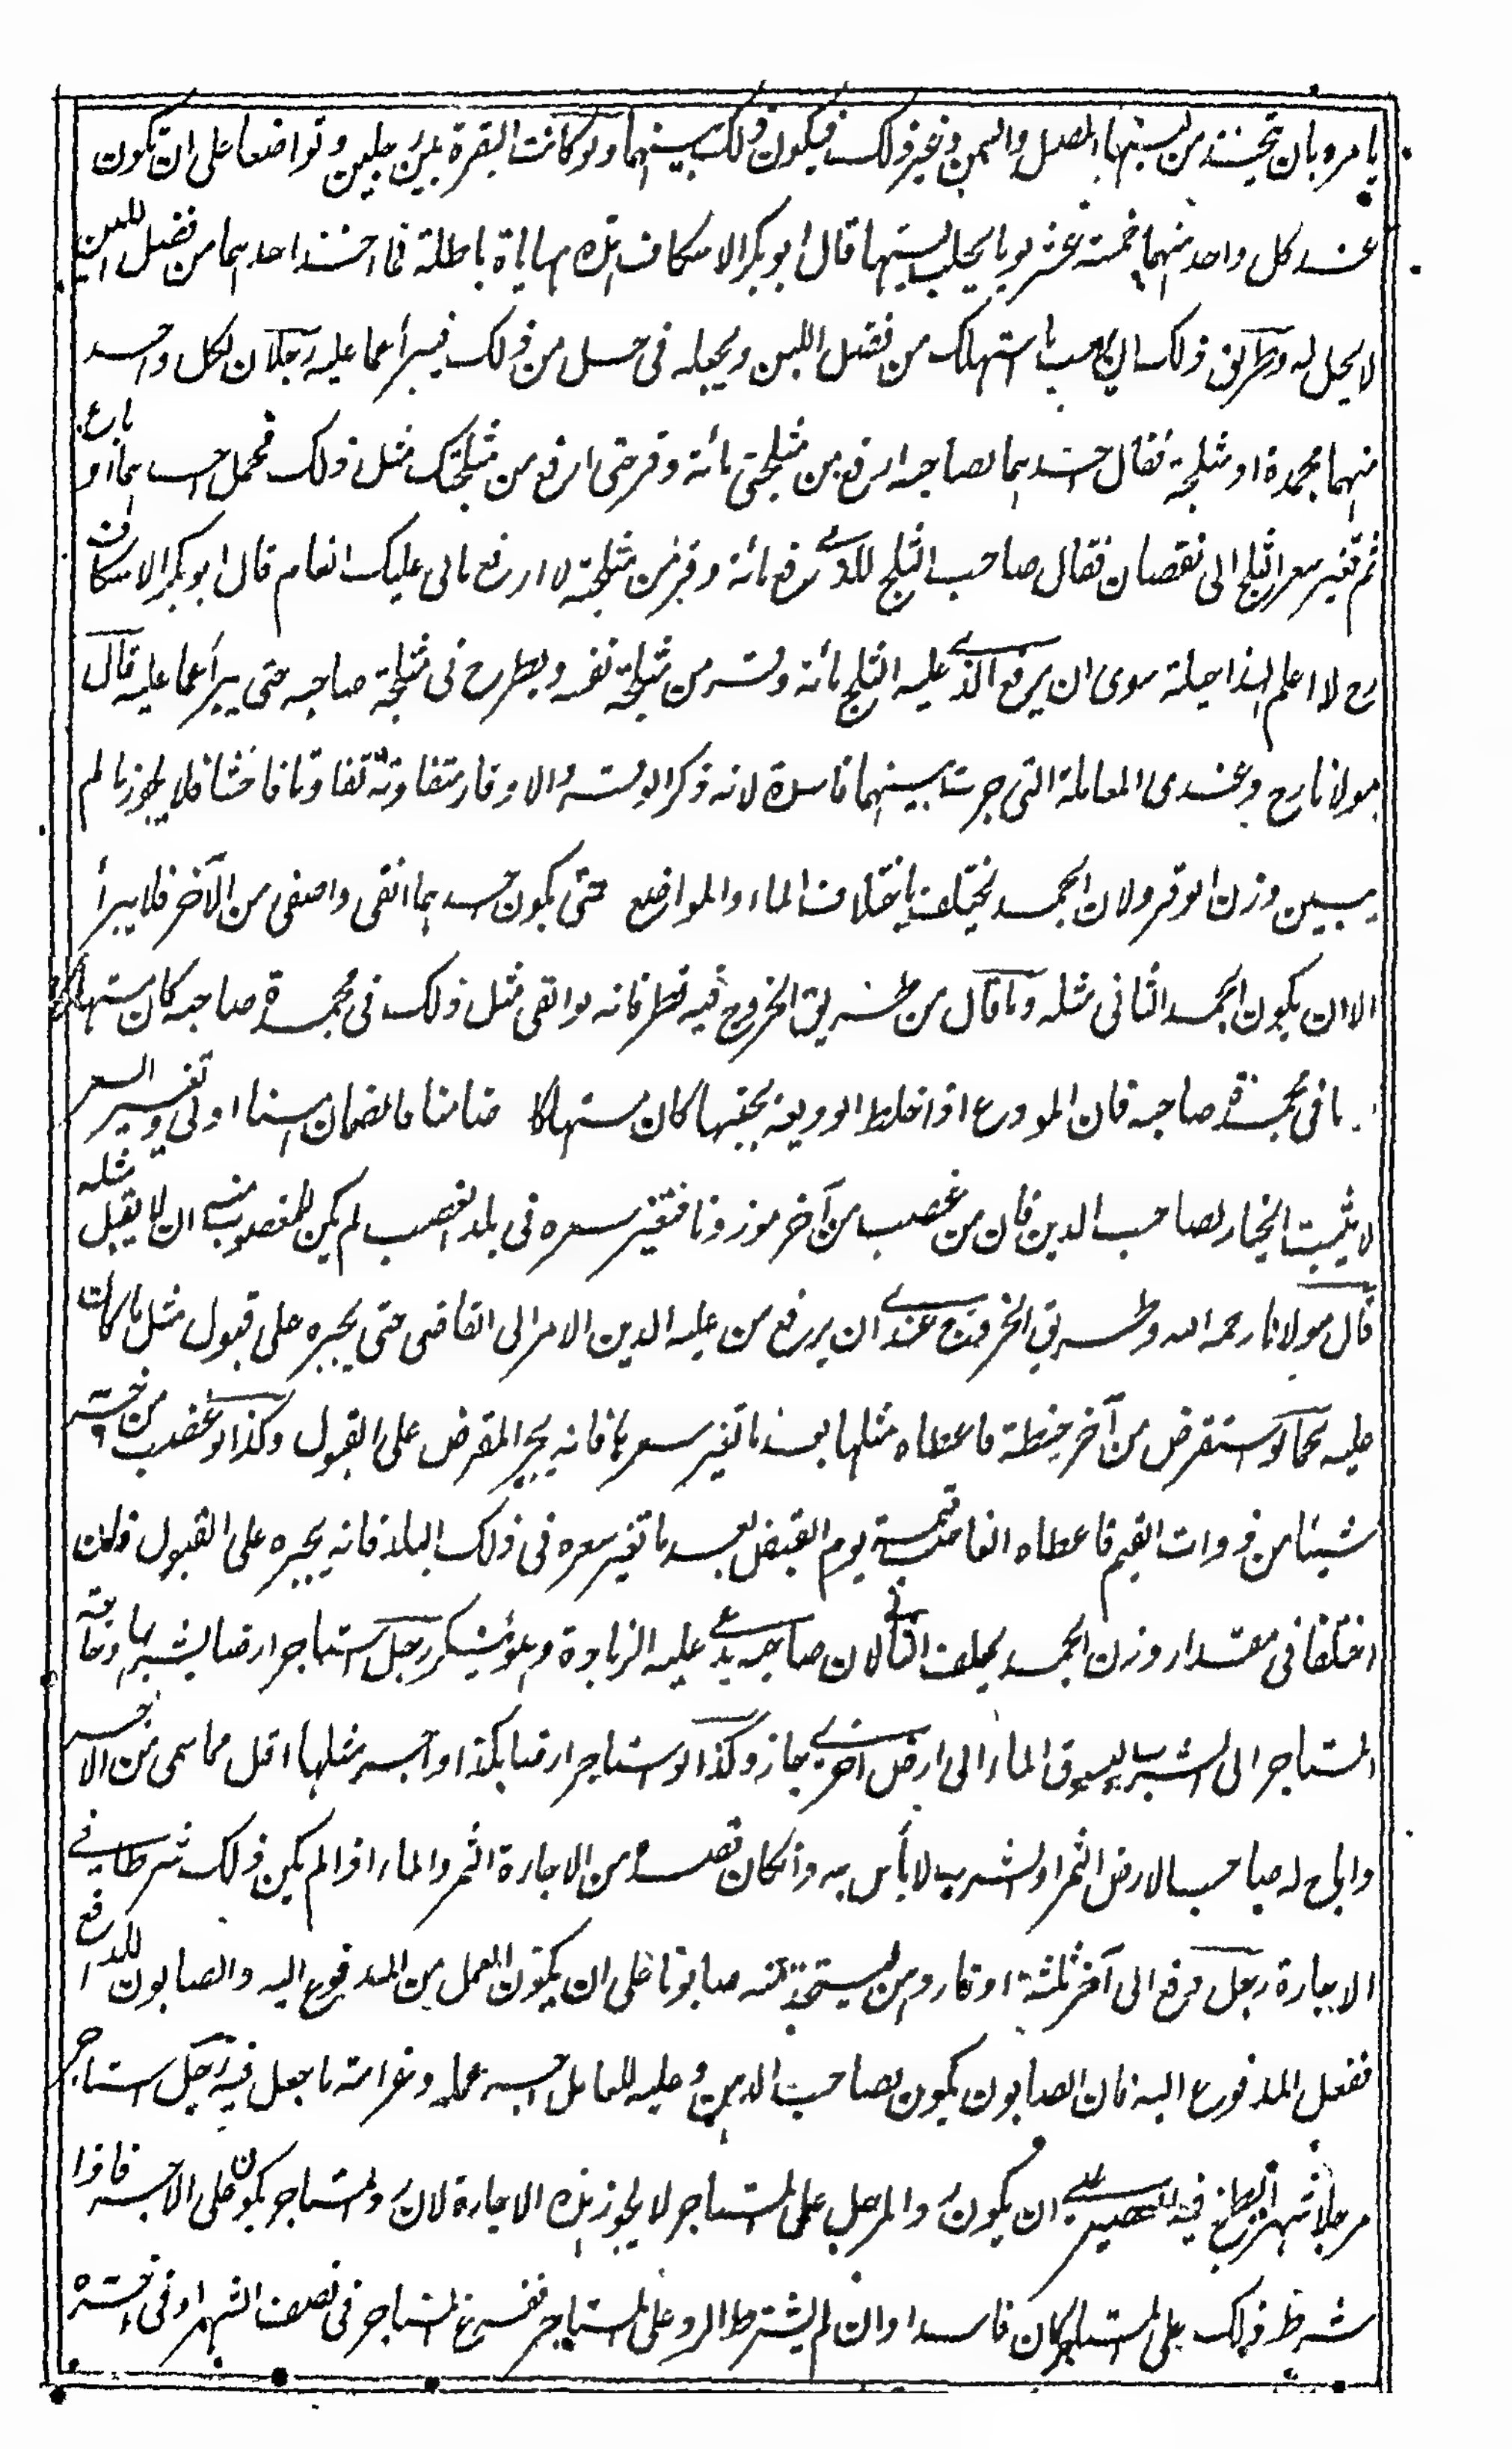 يامره بان يتخذ من لبنها المصل والسمن وغير ذلك فيكون ذلك بينهما ولو كانت البقرة بين رجلين وتواضعا على ان تكون
عند كل واحد منهما خمسة عشر يوما يحلب لبنها قال ابو بكر الاسكاف هذه مهاياة باطلة فما اخذ احدهما من فضل اللبن
لا يحل له وطريق ذلك ان يهب ما استهلك من فضل اللبن ويجعله فى حل من ذلك فيبرأ عما عليه رجلان لكل واحد
منهما مجمدة او مثلجة فقال احدهما لصاحبه ارفع من مثلجتى مائة وقر حتى ارفع من مثلجتك مثل ذلك فحمل احدهما او باع
ثم تغير سعر الثلج الى نقصان فقال صاحب الثلج للذى رفع مائة وقر من مثلجته لا ارفع مالى عليك العام قال ابو بكر الاسكاف
رح لا اعلم لهذا حيلة سوى ان يرفع الذى عليه الثلج مائة وقر من مثلجة نفسه ويطرح فى مثلجة صاحبه حتى يبرأ عما عليه قال
مولانا رح وعندى المعاملة التى جرت بينهما فاسدة لانه ذكر الوقر والاوقار متفاوتة تفاوتا فاحشا فلا يجوز ما لم
يبين وزن الوقر ولان الجمد يختلف باختلاف الماء والمواضع حتى يكون احدهما انقى واصفى من الآخر فلا يبرأ
الا ان يكون الجمد الثانى مثله وما قال من طريق الخروج فيه نظر فانه لو القى مثل ذلك فى مجمدة صاحبه كان مستهلكا
ما فى مجمدة صاحبه فان المودع اذا خلط الوديعة بجنسها كان مستهلكا ضامنا فالضمان هنا اولى وتغير السعر
لا يثبت الخيار لصاحب الدين فان من غصب من آخر موزونا فتغير سعره فى بلد الغصب لم يكن للمغصوب منه ان لا يقبل مثله
قال مولانا رحمه الله وطريق الخروج عندى ان يرفع من عليه الدين الامر الى القاضى حتى يجبره على قبول مثل ما كان
عليه كما لو استقرض من آخر حنطة فاعطاه مثلها بعد ما تغير سعرها فانه يجبر المقرض على القبول وكذا لو غصب من آخر
شيئا من ذوات القيم فاعطاه الغاصب قيمته يوم القبض بعد ما تغير سعره فى ذلك البلد فانه يجبره على القبول فان
اختلفا فى مقدار وزن الجمد يحلف الثانى لان صاحبه يدعى عليه الزيادة وهو ينكر رجل استاجر ارضا بشربها وفاتحه
المستاجر الى الشرب ليسوق الماء الى ارض اخرى جاز وكذا لو استاجر ارضا بكذا او آجر مثلها اقل مما سمى من الاجر
واباح له صاحب الارض الثمر او الشرب لا بأس به وان كان قصده من الاجارة الثمر والماء اذا لم يكن ذلك شرطا فى
الاجارة رجل دفع الى آخر ثلثة اوقار دهن ليتخذ منه صابونا على ان يكون العمل من المدفوع اليه والصابون للدافع
ففعل المدفوع اليه فان الصابون يكون لصاحب الدهن وعليه للعامل اجر عمله وغرامة ما جعل فيه رجل استاجر
مرجلا شهرا ليطبخ فيه العصير على ان يكون رد المرجل على المستاجر لا يجوز هذه الاجارة لان رد المستاجر يكون على الآجر فاذا
شرط ذلك على المستاجر كان فاسدا وان لم يشترط الرد على المستاجر ففرغ المستاجر فى نصف الشهر او فى آخره